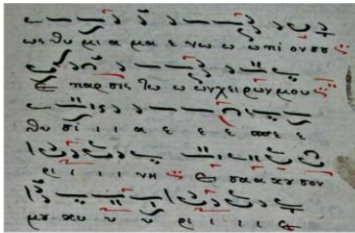 ως θυ μι α μα ε νω ω ω πι ον σου
ε παρ σις τω ω ων χει ρων μου
θυ σι ι ι α ε ε ε
ρι ι ι ι νη ει σα α κου σον
μου κυ υ υ ρι ι ι ι ε